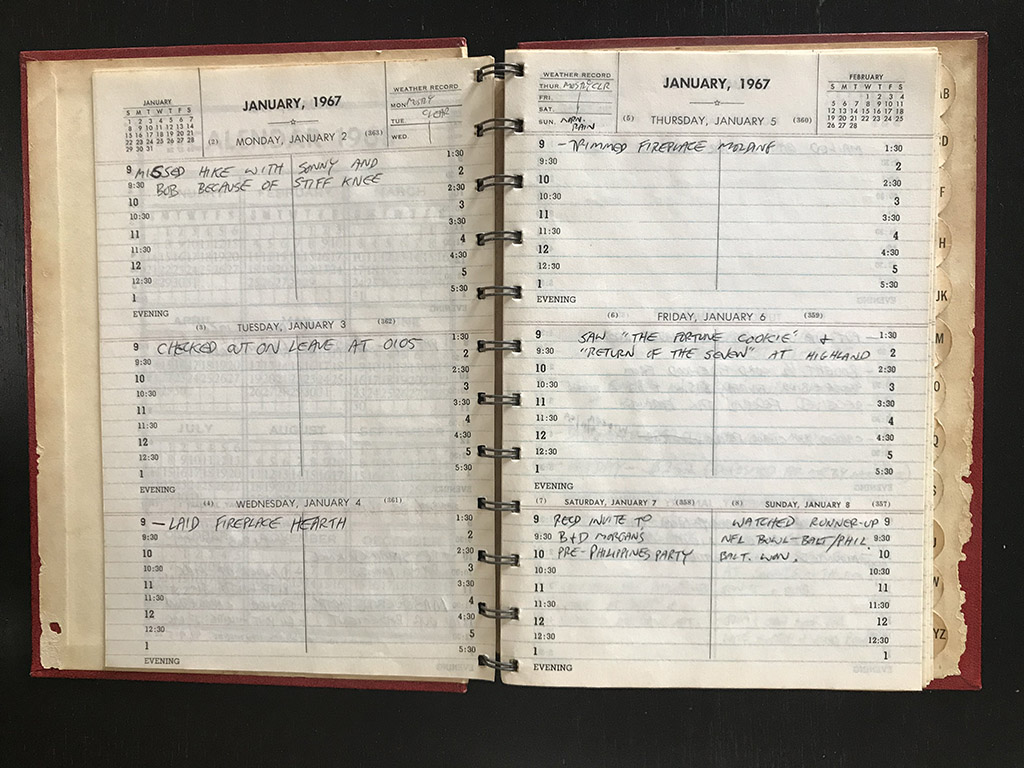 JANUARY
S M T W T F S
1 2 3 4 5 6 7
8 9 10 11 12 13 14
15 16 17 18 19 20 21
22 23 24 25 26 27 28
29 30 31
JANUARY, 1967
WEATHER RECORD
MON. MOSTLY
TUE. CLEAR
WED.
(2) MONDAY, JANUARY 2 (363)
9 MISSED HIKE WITH SONNY AND 1:30
9:30 BOB BECAUSE OF STIFF KNEE 2
10 2:30
10:30 3
11 3:30
11:30 4
12 4:30
12:30 5
1 5:30
EVENING
(3) TUESDAY, JANUARY 3 (362)
9 CHECKED OUT ON LEAVE AT 0105 1:30
9:30 2
10 2:30
10:30 3
11 3:30
11:30 4
12 4:30
12:30 5
1 5:30
EVENING
(4) WEDNESDAY, JANUARY 4 (361)
9 - LAID FIREPLACE HEARTH 1:30
9:30 2
10 2:30
10:30 3
11 3:30
11:30 4
12 4:30
12:30 5
1 5:30
EVENING
WEATHER RECORD
THUR. MOSTLY CLR
FRI.
SAT.
SUN. NRN. RAIN
JANUARY, 1967
FEBRUARY
S M T W T F S
1 2 3 4
5 6 7 8 9 10 11
12 13 14 15 16 17 18
19 20 21 22 23 24 25
26 27 28
(5) THURSDAY, JANUARY 5 (360)
9 - TRIMMED FIREPLACE MOLDING 1:30
9:30 2
10 2:30
10:30 3
11 3:30
11:30 4
12 4:30
12:30 5
1 5:30
EVENING
(6) FRIDAY, JANUARY 6 (359)
9 SAW "THE FORTUNE COOKIE" & 1:30
9:30 "RETURN OF THE SEVEN" AT HIGHLAND 2
10 2:30
10:30 3
11 3:30
11:30 4
12 4:30
12:30 5
1 5:30
EVENING
(7) SATURDAY, JANUARY 7 (358)
9 RECD INVITE TO
9:30 B+D MORGANS
10 PRE-PHILIPPINES PARTY
10:30
11
11:30
12
12:30
1
EVENING
(8) SUNDAY, JANUARY 8 (357)
WATCHED RUNNER-UP 9
NFL BOWL-BALT/PHIL. 9:30
BALT. WON. 10
10:30
11
11:30
12
12:30
1
EVENING
AB
F
H
JK
M
O
Q
S
W
YZ